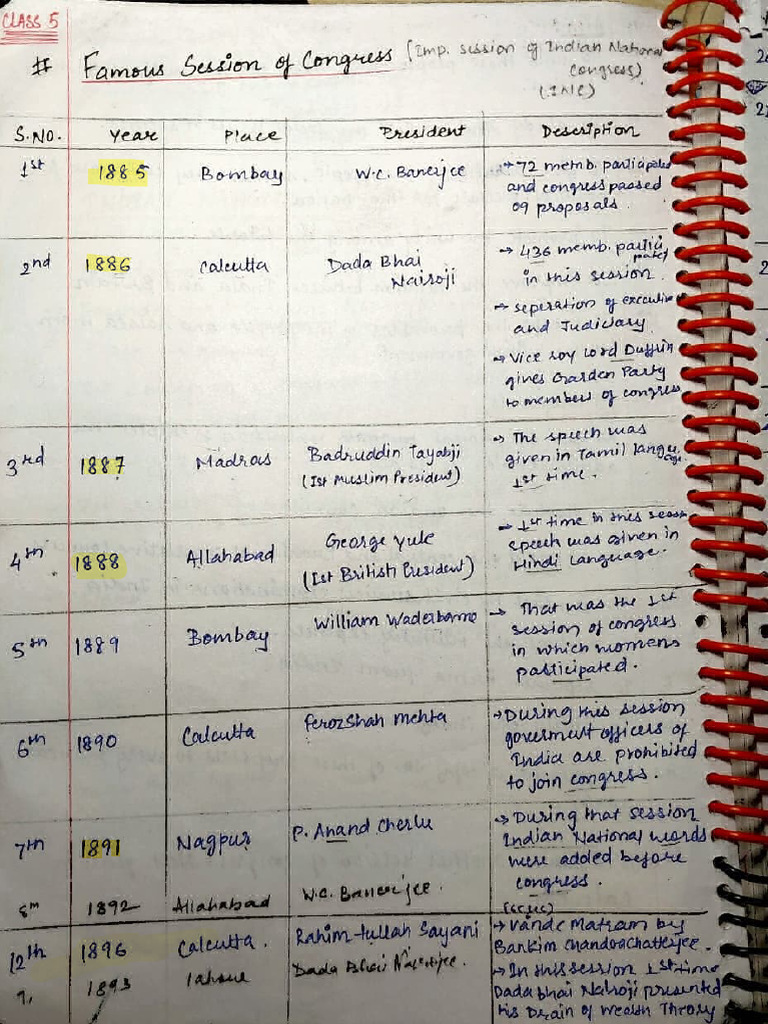 CLASS 5
# Famous Session of Congress (Imp. session of Indian Nationa
Congress)
(INC)
S.NO. Year Place President Description
1st 1885 Bombay W.C. Banerjee → 72 memb. participated
and congress passed
09 proposals.
2nd 1886 Calcutta Dada Bhai Nairoji → 436 memb. participated
in this session.
→ seperation of executive
and Judiciary.
→ Vice roy Lord Duffrin
gives Garden Party
to members of congress
3rd 1887 Madras Badruddin Tayabji
(Ist Muslim President)
→ The speech was
given in Tamil language
1st time.
4th 1888 Allahabad George Yule
(Ist British President)
→ 1st time in this sess
speech was given in
Hindi Language.
5th 1889 Bombay William Waderborne → That was the 1st
session of congress
in which womens
participated.
6th 1890 Calcutta ferozshah Mehta → During this session
goverment officers of
India are prohibited
to join congress.
7th 1891 Nagpur P. Anand Cherlu → During that session
Indian National words
were added before
congress.
8th 1892 Allahabad W.C. Banerjee.
12th 1896 Calcutta. Rahim-tullah Sayani → Vande Matram by
Bankim Chandra Chatterjee.
9, 1893 lahore Dada Bhai → In this session 1st time
Dadabhai Nairoji presented
his Drain of Wealth Theory